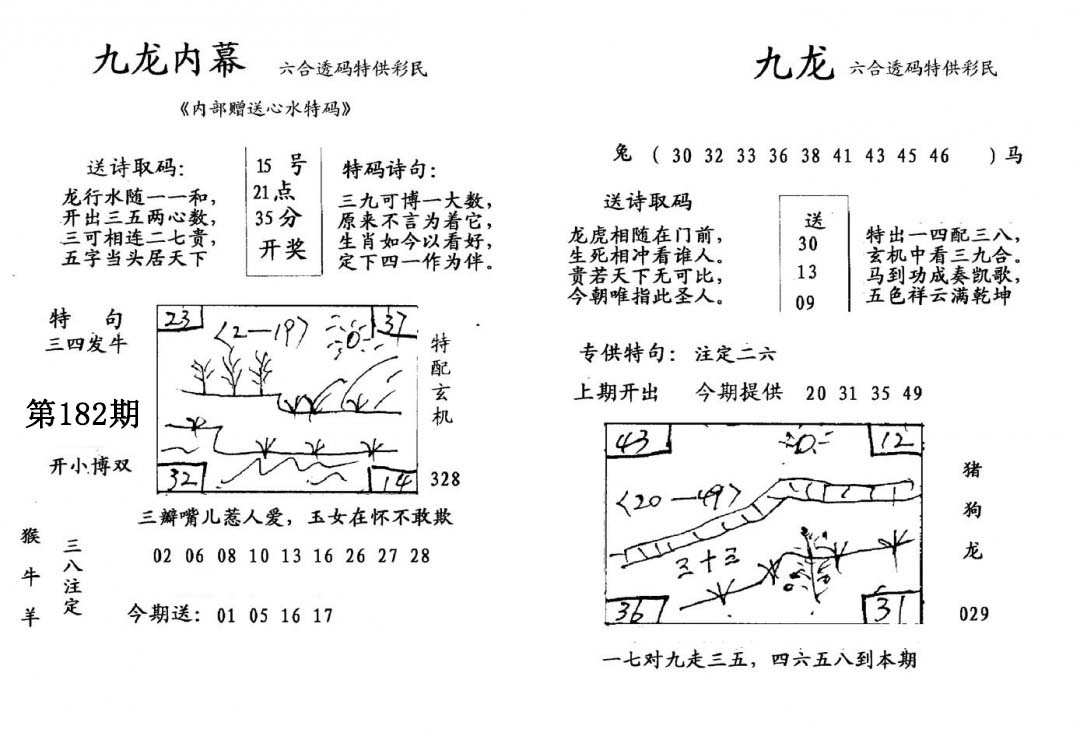 九龙内幕 六合透码特供彩民
《内部赠送心水特码》
送诗取码：
龙行水随一一和，
开出三五两心数，
三可相连二七贵，
五字当头居天下
15 号
21点
35分
开奖
特码诗句：
三九可博一大数，
原来不言为着它，
生肖如今以看好，
定下四一作为伴。
特 句
三四发牛
第182期
开小博双
23
〈2—19〉
37
32
14
特配玄机
328
三瓣嘴儿惹人爱，玉女在怀不敢欺
猴牛羊
三八注定
02 06 08 10 13 16 26 27 28
今期送：01 05 16 17
九龙 六合透码特供彩民
兔 （30 32 33 36 38 41 43 45 46 ）马
送诗取码
龙虎相随在门前，
生死相冲看谁人。
贵若天下无可比，
今朝唯指此圣人。
送
30
13
09
特出一四配三八，
玄机中看三九合。
马到功成奏凯歌，
五色祥云满乾坤
专供特句：注定二六
上期开出 今期提供 20 31 35 49
43
12
〈20—49〉
三十三
36
31
猪
狗
龙
029
一七对九走三五，四六五八到本期